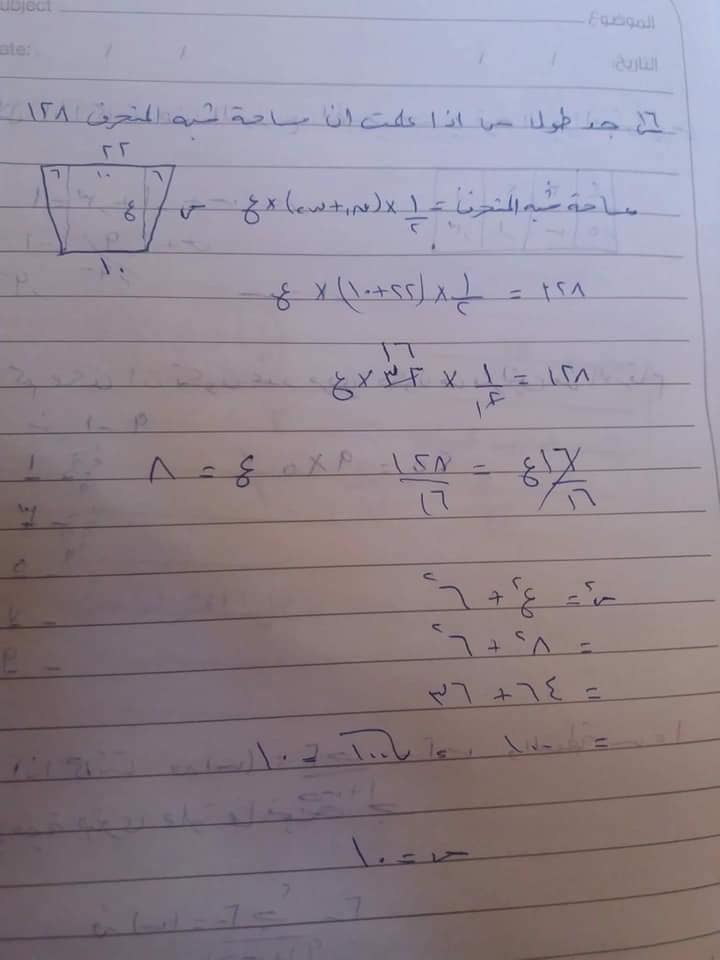 Subject
الموضوع
Date: / /
/ / التاريخ
١٦ جد طول س اذا علمت ان مساحة شبه المنحرف ١٢٨
٢٢
٦ ١٠ ٦
ع س
١٠
مساحة شبه المنحرف = ١/٢ × (ق١ + ق٢) × ع
١٢٨ = ١/٢ × (٢٢+١٠) × ع
١٢٨ = ١/٢ × ٣٢ × ع
١٦
١
١٦ع/١٦ = ١٢٨/١٦ ع = ٨
س² = ع² + ٦²
= ٨² + ٦²
= ٦٤ + ٣٦
= ١٠٠ √١٠٠ = ١٠
س = ١٠